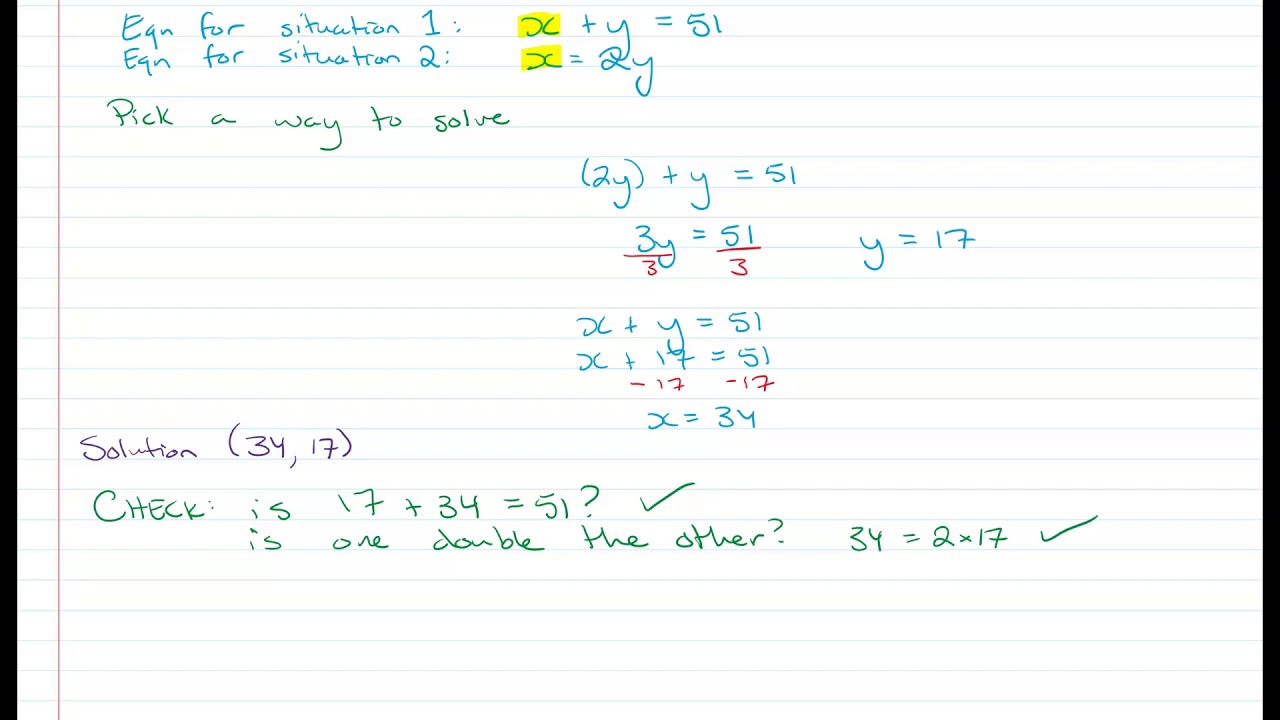 Eqn for situation 1: x + y = 51
Eqn for situation 2: x = 2y
Pick a way to solve
(2y) + y = 51
3y = 51 y = 17
3 3
x + y = 51
x + 17 = 51
-17 -17
x = 34
Solution (34, 17)
CHECK: is 17 + 34 = 51? ✓
is one double the other? 34 = 2×17 ✓